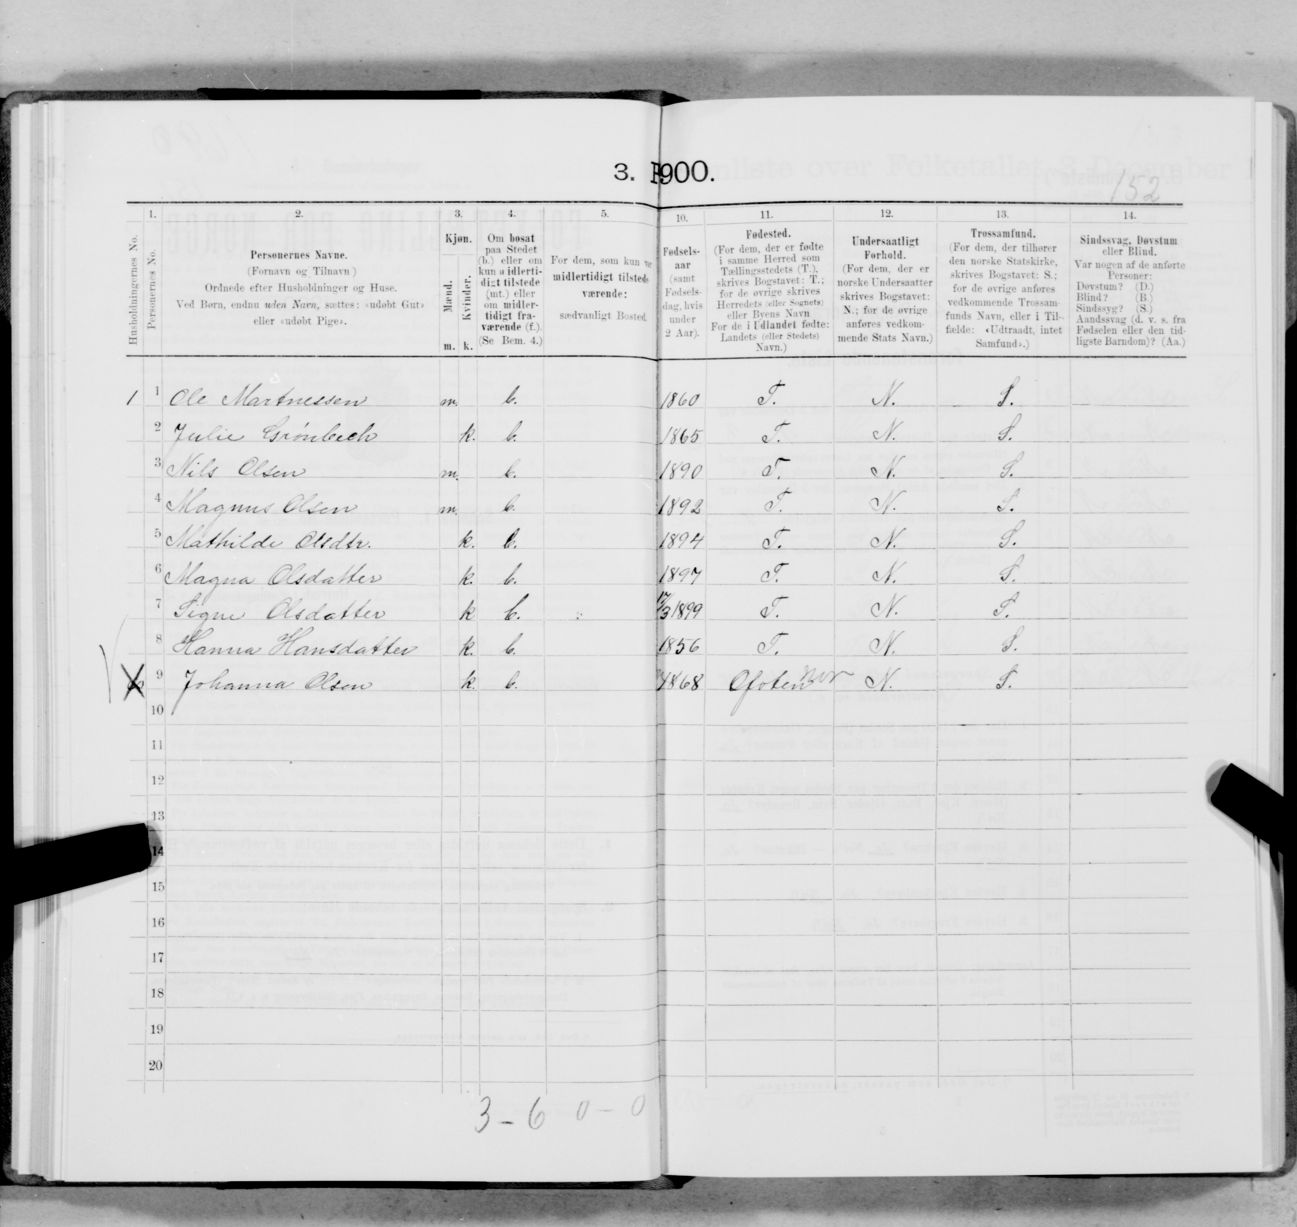 3. 1900.
152
1.
Husholdningernes No.
Personernes No.
2.
Personernes Navne.
(Fornavn og Tilnavn)
Ordnede efter Husholdninger og Huse.
Ved Børn, endnu uden Navn, sættes: «udøbt Gut»
eller «udøbt Pige».
3.
Kjøn.
Mænd.
Kvinder.
m. k.
4.
Om bosat
paa Stedet
(b.) eller om
kun midlerti-
digt tilstede
(mt.) eller
om midler-
tidigt fra-
værende (f.).
(Se Bem. 4.)
5.
For dem, som kun var
midlertidigt tilstede
værende:
sædvanligt Bosted.
10.
Fødsels-
aar
(samt
Fødsels-
dag, hvis
under
2 Aar).
11.
Fødested.
(For dem, der er fødte
i samme Herred som
Tællingsstedets (T.),
skrives Bogstavet: T.;
for de øvrige skrives
Herredets (eller Sognets)
eller Byens Navn
For de i Udlandet fødte:
Landets (eller Stedets)
Navn.)
12.
Undersaatligt
Forhold.
(For dem, der er
norske Undersaatter
skrives Bogstavet:
N.; for de øvrige
anføres vedkom-
mende Stats Navn.)
13.
Trossamfund.
(For dem, der tilhører
den norske Statskirke,
skrives Bogstavet: S.;
for de øvrige anføres
vedkommende Trossam-
funds Navn, eller i Til-
fælde: «Udtraadt, intet
Samfund».)
14.
Sindssvag, Døvstum
eller Blind.
Var nogen af de anførte
Personer:
Døvstum? (D.)
Blind? (B.)
Sindssyg? (S.)
Aandssvag (d. v. s. fra
Fødselen eller den tid-
ligste Barndom)? (Aa.)
1 1 Ole Martnessen m. b. 1860 T. N. S.
2 Julie Grönbech k. b. 1865 T. N. S.
3 Nils Olsen m. b. 1890 T. N. S.
4 Magnus Olsen m. b. 1892 T. N. S.
5 Mathilde Olsdtr. k. b. 1894 T. N. S.
6 Magna Olsdatter k. b. 1897 T. N. S.
7 Signe Olsdatter k b. 17/3 1899 T. N. S.
8 Hanna Hansdatter k. b. 1856 T. N. S.
9 Johanna Olsen k. b. 1868 Ofoten N. S.
10
11
12
13
14
15
16
17
18
19
20
3 - 6 0 - 0